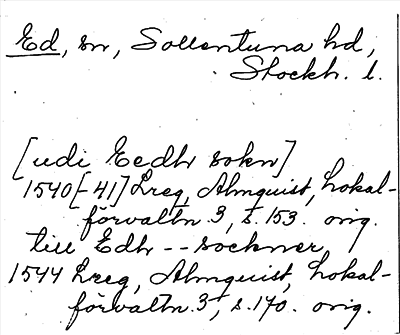 Ed, sn, Sollentuna hd,
Stockh. l.
[udi Eedh sokn]
1540[-41] Lreg, Almquist, Lokal-
förvaltn. 3, s. 153. orig.
till Edh -- sockner,
1544 Lreg, Almquist, Lokal-
förvaltn. 3, s. 170. orig.